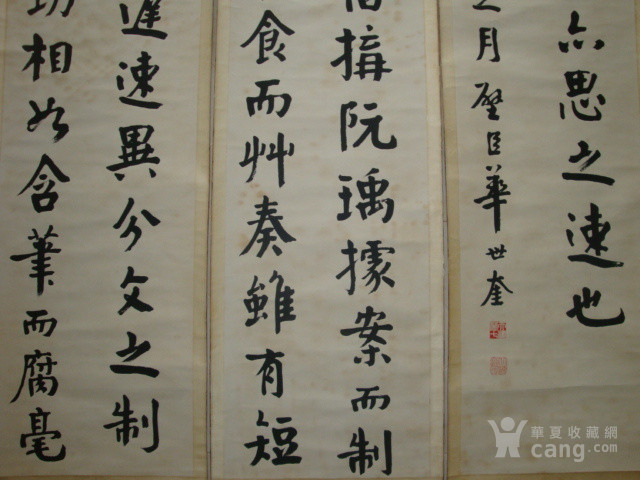 遲速異分文之制
功相如含筆而腐毫
搆阮瑀據案而制
食而艸奏雖有短
亦思之速也
月 璧臣華世奎
華夏收藏網
cang.com